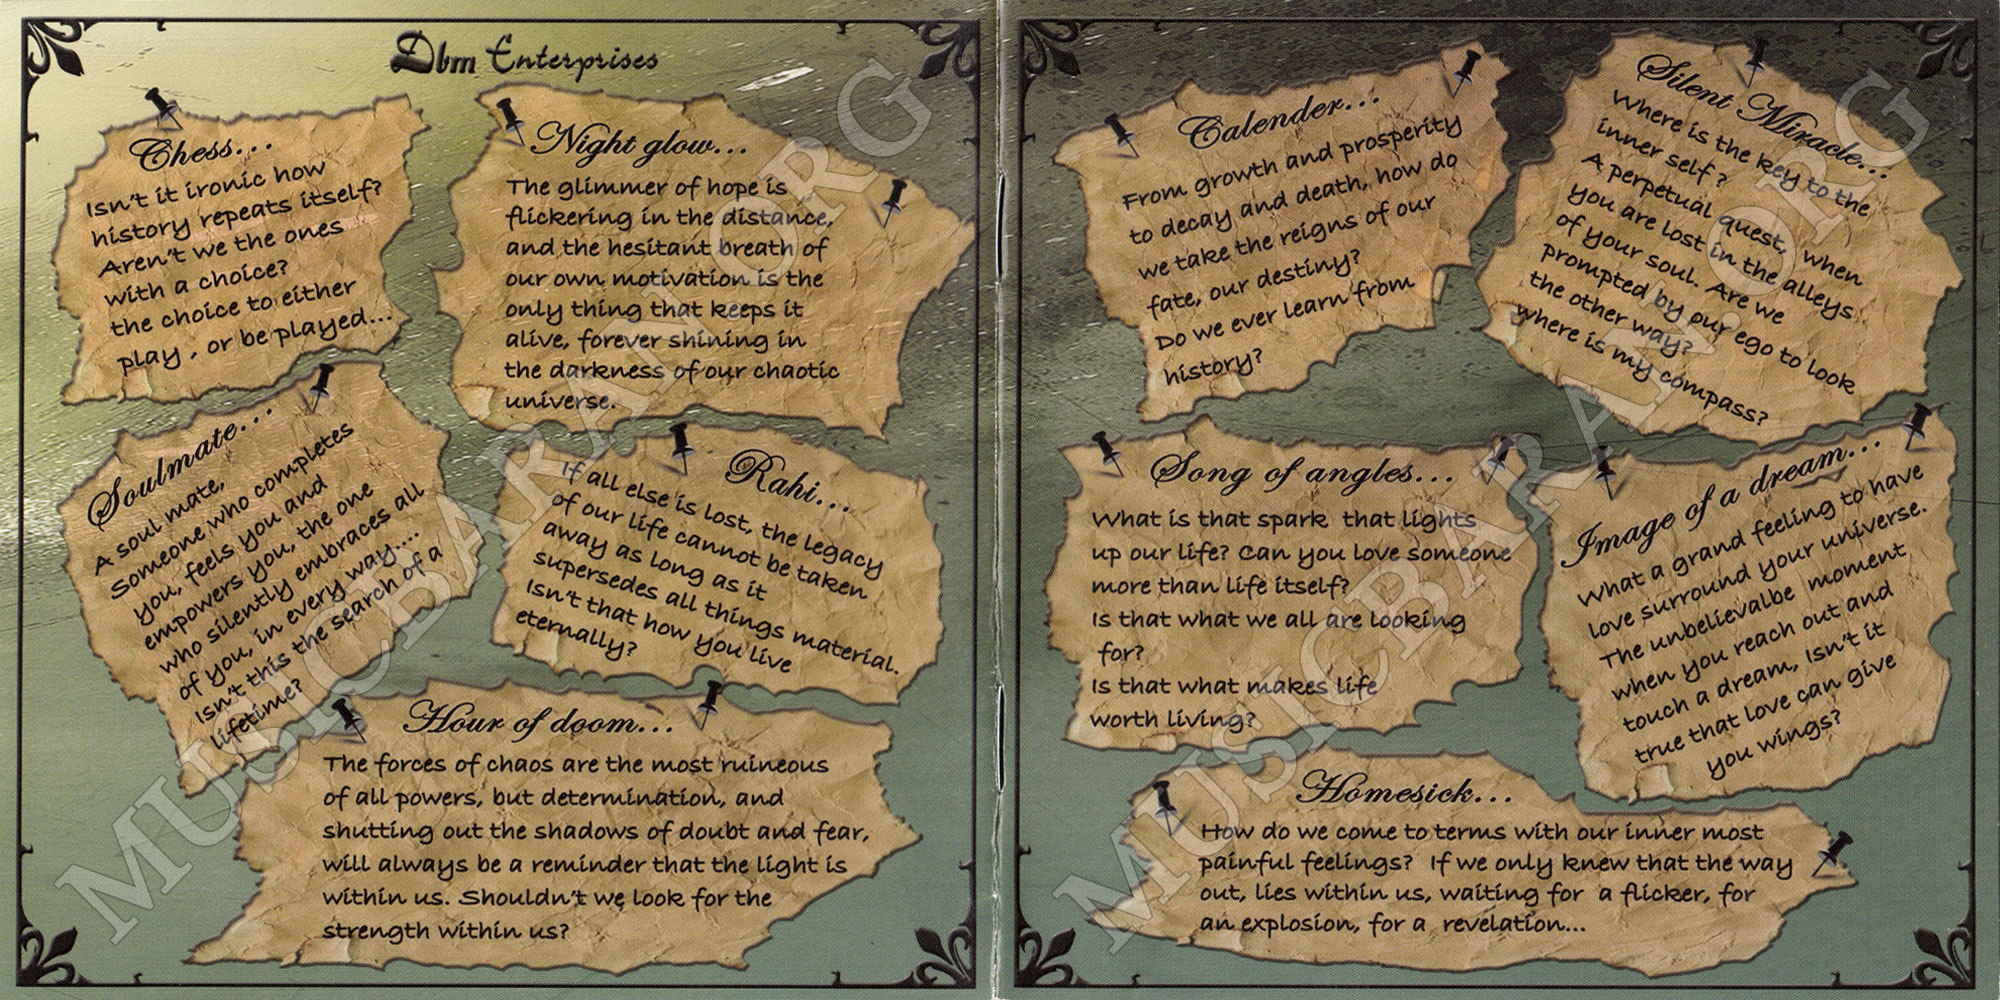 Dbm Enterprises
Chess...
Isn't it ironic how
history repeats itself?
Aren't we the ones
with a choice?
the choice to either
play , or be played...
Night glow...
The glimmer of hope is
flickering in the distance,
and the hesitant breath of
our own motivation is the
only thing that keeps it
alive, forever shining in
the darkness of our chaotic
universe.
Soulmate...
A soul mate,
Someone who completes
you, feels you and
empowers you, the one
who silently embraces all
of you, in every way....
Isn't this the search of a
lifetime?
Rahi...
If all else is lost, the legacy
of our life cannot be taken
away as long as it
supersedes all things material.
Isn't that how you live
eternally?
Hour of doom...
The forces of chaos are the most ruineous
of all powers, but determination, and
shutting out the shadows of doubt and fear,
will always be a reminder that the light is
within us. Shouldn't we look for the
strength within us?
MUSICBARAN.ORG
Calender...
From growth and prosperity
to decay and death, how do
we take the reigns of our
fate, our destiny?
Do we ever learn from
history?
Silent Miracle...
Where is the key to the
inner self?
A perpetual quest, when
you are lost in the alleys
of your soul. Are we
prompted by our ego to look
the other way?
where is my compass?
Song of angles...
What is that spark that lights
up our life? Can you love someone
more than life itself?
Is that what we all are looking
for?
Is that what makes life
worth living?
Image of a dream...
What a grand feeling to have
love surround your universe.
The unbelievalbe moment
when you reach out and
touch a dream, Isn't it
true that love can give
you wings?
Homesick...
How do we come to terms with our inner most
painful feelings? If we only knew that the way
out, lies within us, waiting for a flicker, for
an explosion, for a revelation...
MUSICBARAN.ORG